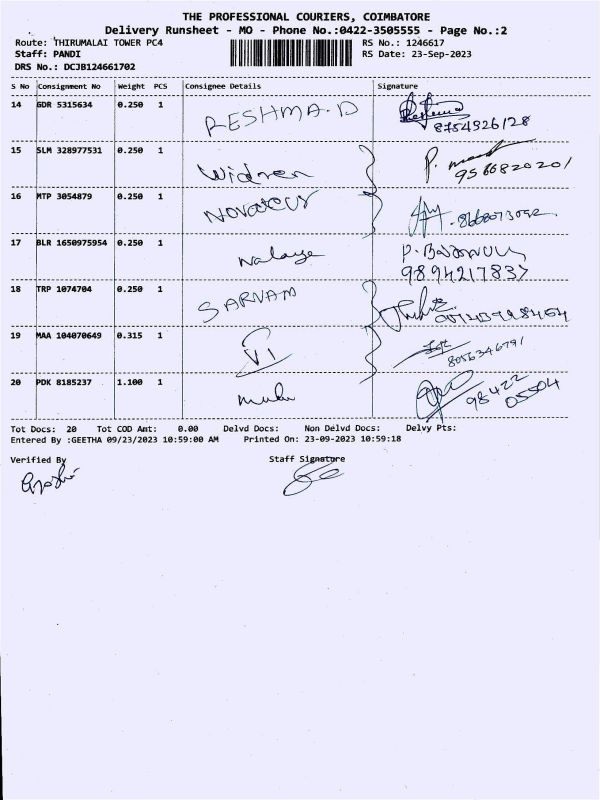 THE PROFESSIONAL COURIERS, COIMBATORE
Delivery Runsheet - MO - Phone No.:0422-3505555 - Page No.:2
Route: THIRUMALAI TOWER PC4 RS No.: 1246617
Staff: PANDI RS Date: 23-Sep-2023
DRS No.: DCJB124661702
S No Consignment No Weight PCS Consignee Details Signature
14 GDR 5315634 0.250 1 RESHMA.D
8754326128
15 SLM 328977531 0.250 1
9566820201
16 MTP 3054879 0.250 1
17 BLR 1650975954 0.250 1
9894217837
18 TRP 1074704 0.250 1 SARVAM
19 MAA 104070649 0.315 1 VI
8056346791
20 PDK 8185237 1.100 1
98422
05504
Tot Docs: 20 Tot COD Amt: 0.00 Delvd Docs: Non Delvd Docs: Delvy Pts:
Entered By :GEETHA 09/23/2023 10:59:00 AM Printed On: 23-09-2023 10:59:18
Verified By Staff Signature